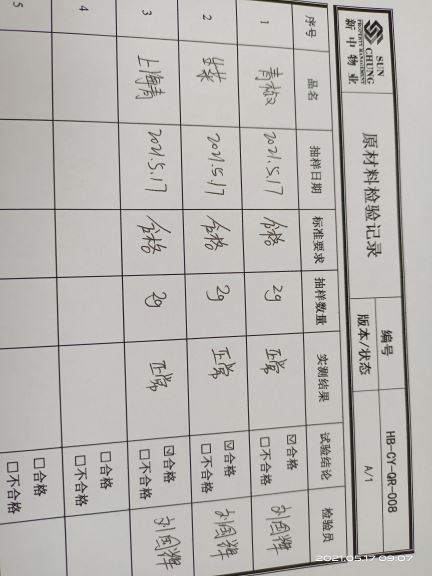 SUN
CHUNG
PROPERTY MANAGEMENT
新中物业
原材料检验记录
编号 HB-CY-QR-008
版本/状态 A/1
序号 品名 抽样日期 标准要求 抽样数量 实测结果 试验结论 检验员
1 青椒 2021.5.17 合格 2g 正常 ☑合格 □不合格 刘国辉
2 2021.5.17 合格 2g 正常 ☑合格 □不合格 刘国辉
3 上海青 2021.5.17 合格 2g 正常 ☑合格 □不合格 刘国辉
4 □合格 □不合格
5 □合格 □不合格
2021.05.17 09:07